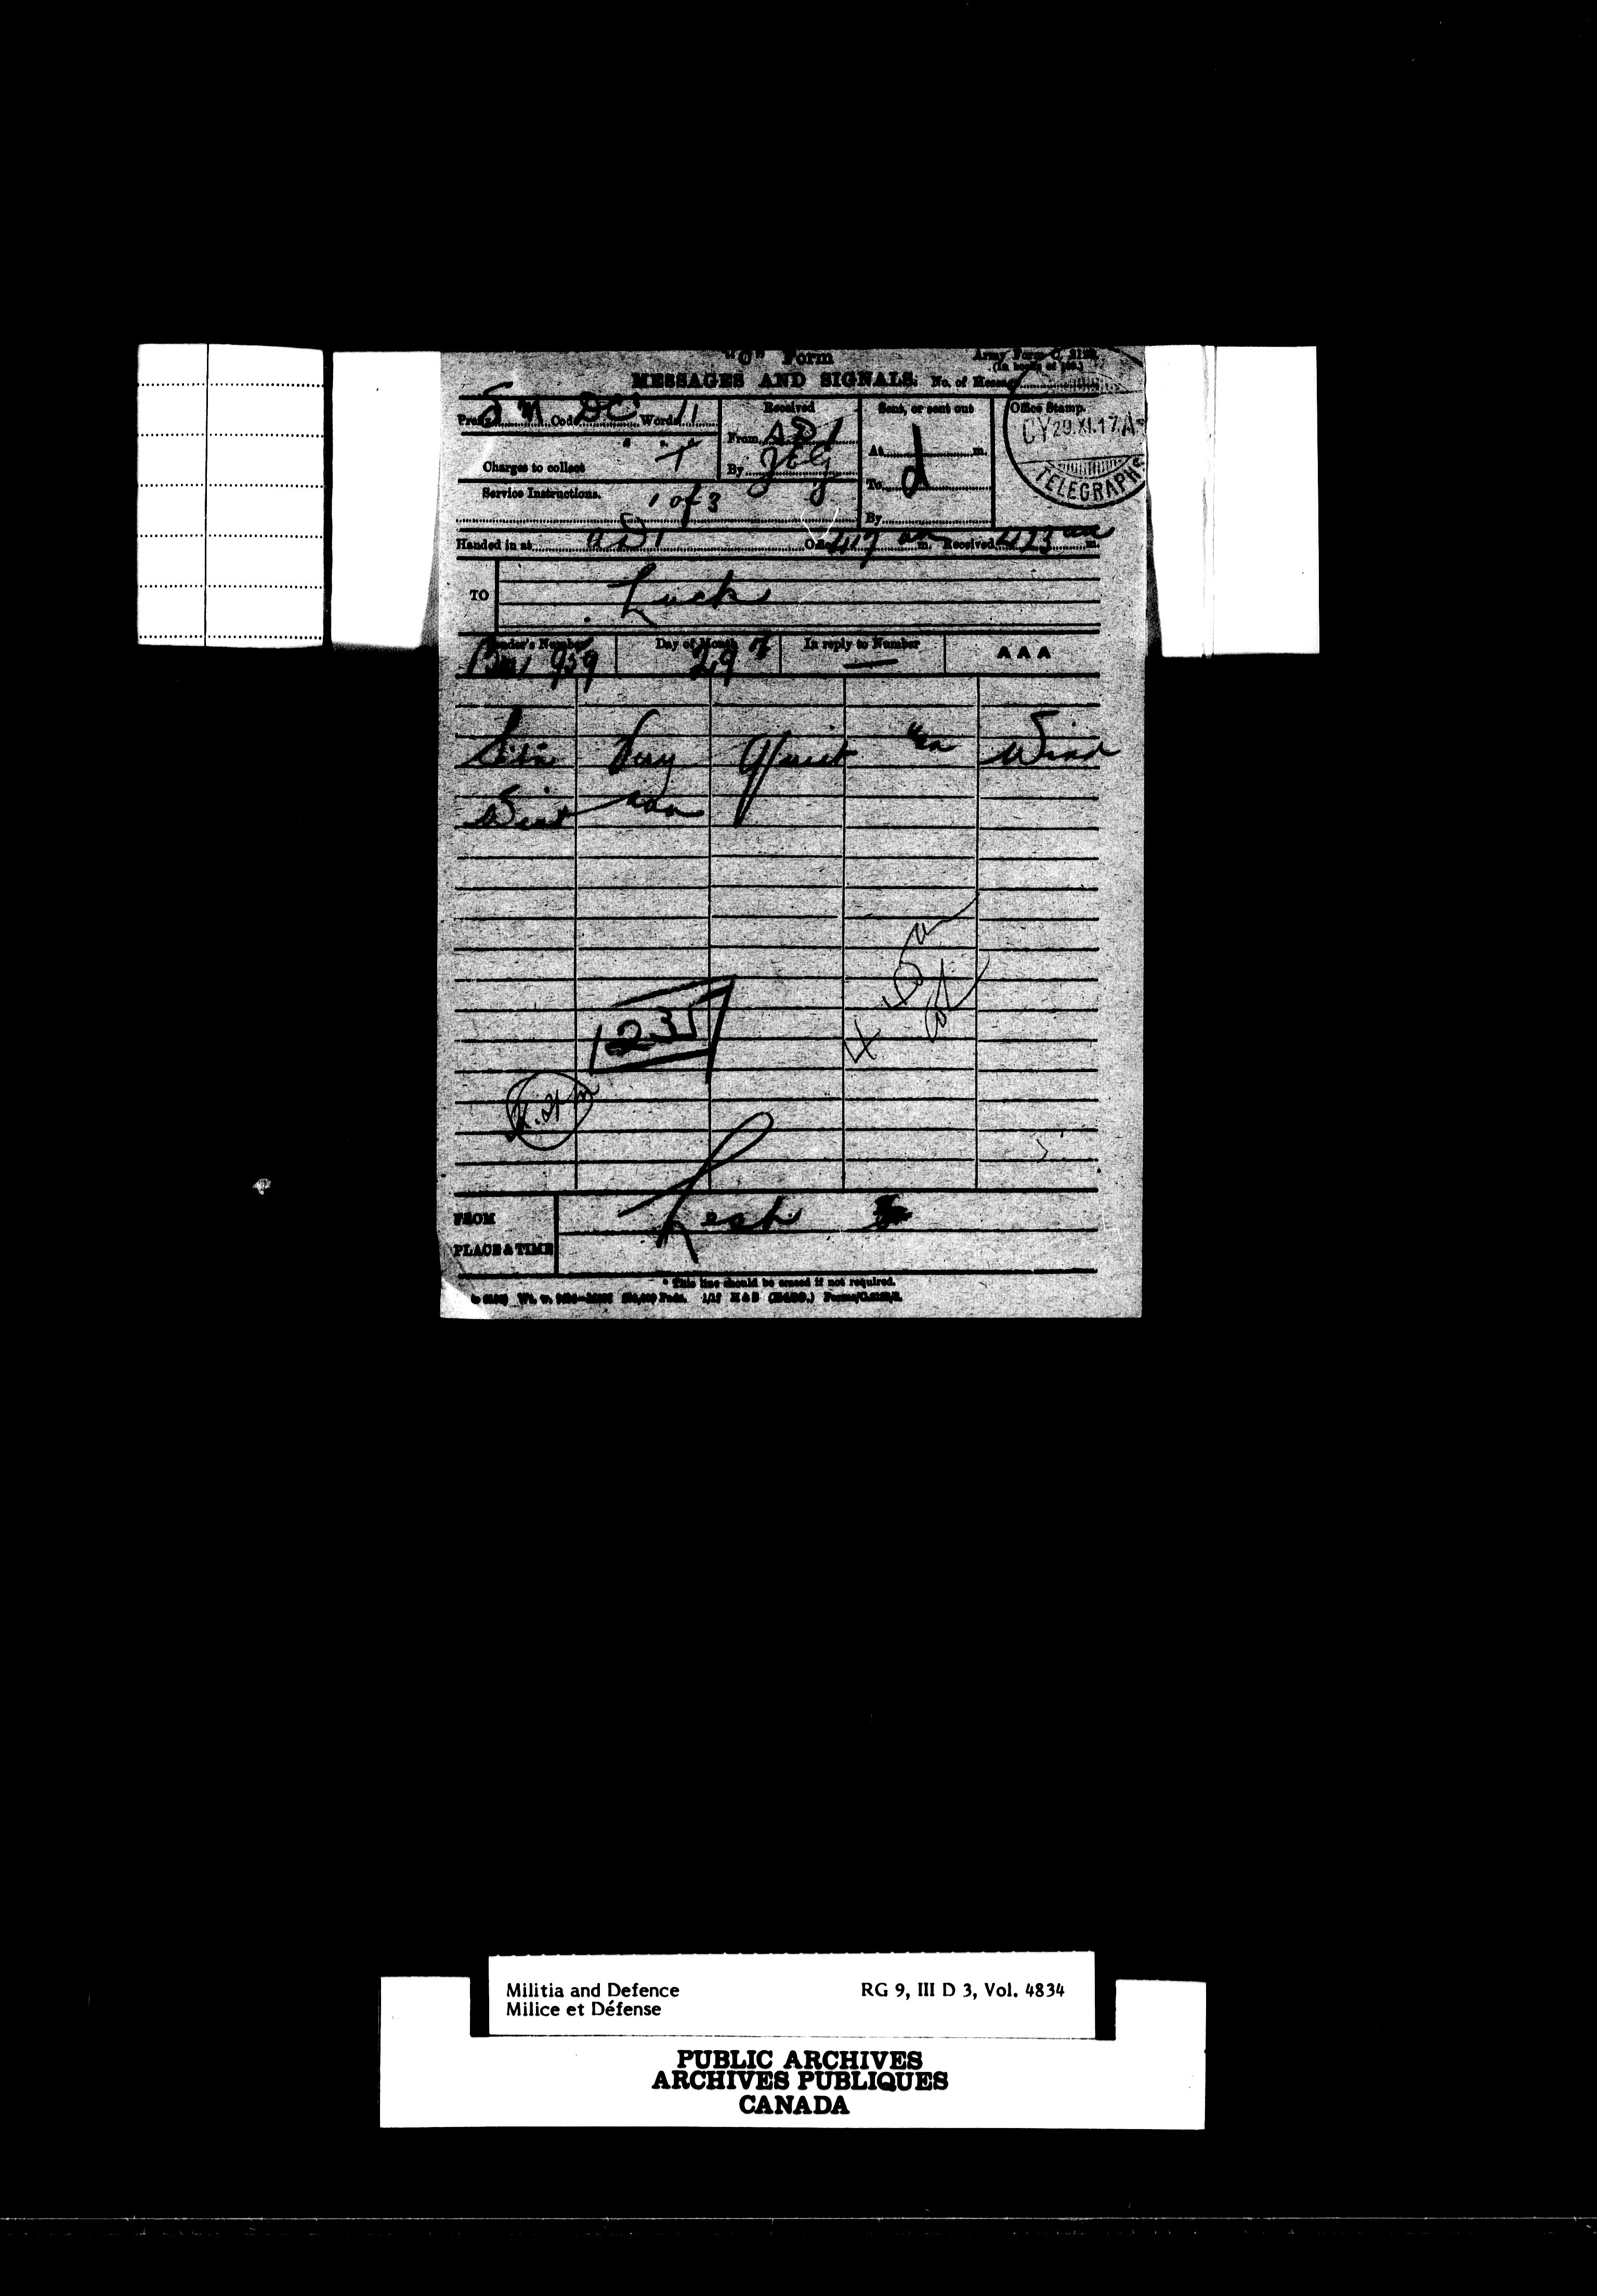 "C" Form
Army Form C. 2123.
(In books of 100.)
MESSAGES AND SIGNALS. No. of Message
Prefix SM Code DC Words 11
Received
Sent, or sent out
Office Stamp.
From AD1
At m.
CY 29.XI.17 A
TELEGRAPHS
Charges to collect
By
To
Service Instructions. 1 of 3
By
Handed in at AD1 Office 417 am m. Received 423 am m.
TO Luck
Sender's Number 959
Day of Month 29th
In reply to Number —
AAA
Sitn Very Quiet aaa Wind
West aaa
123
FROM Lesh
PLACE & TIME
* This line should be erased if not required.
Militia and Defence RG 9, III D 3, Vol. 4834
Milice et Défense
PUBLIC ARCHIVES
ARCHIVES PUBLIQUES
CANADA